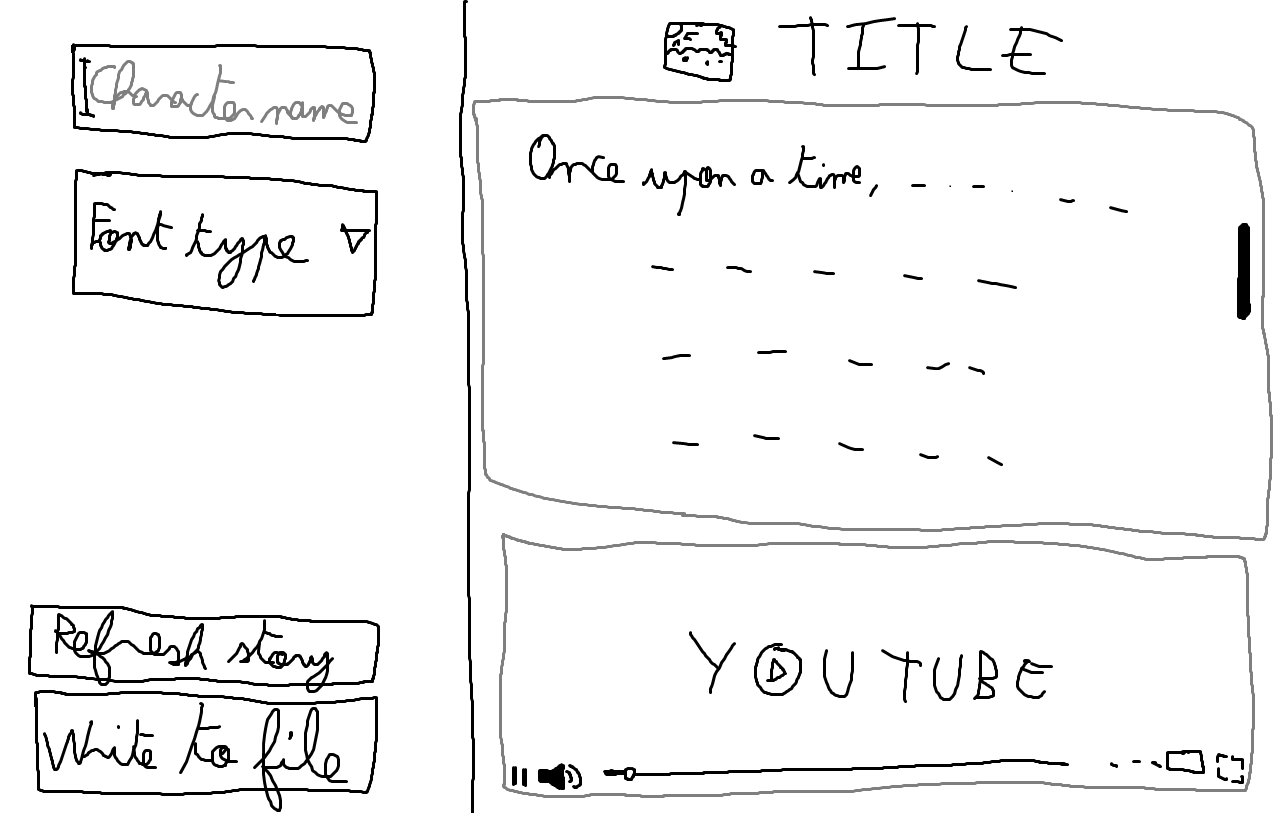 Character name
Font type
Refresh story
Write to file
TITLE
Once upon a time,
YOUTUBE